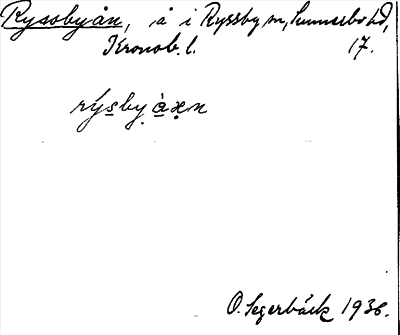 Ryssbyån, å i Ryssby sn, Sunnerbo hd,
Kronob. l. 17.
rýs̲by̲ à̲x̣n
O. Segerbäck 1936.